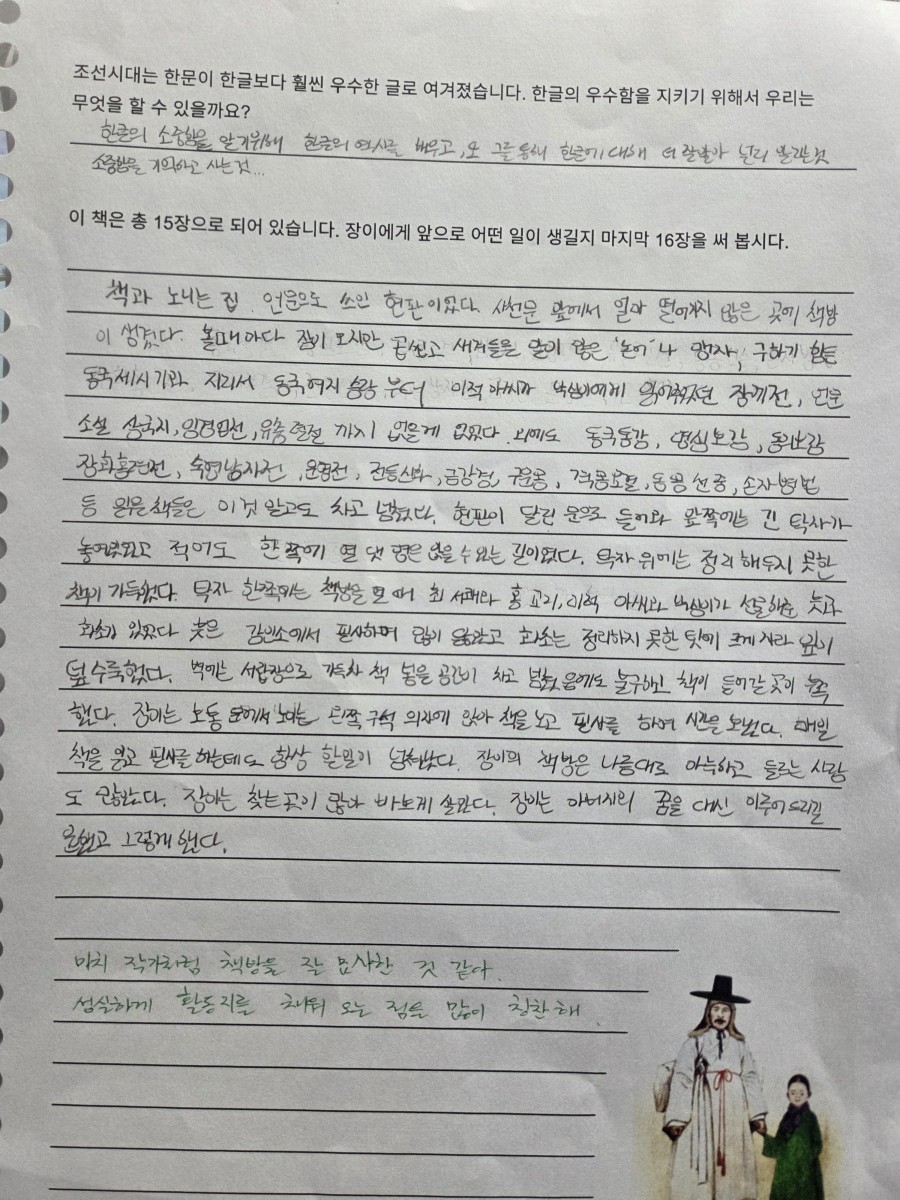 조선시대는 한문이 한글보다 훨씬 우수한 글로 여겨졌습니다. 한글의 우수함을 지키기 위해서 우리는
무엇을 할 수 있을까요?
한글의 소중함을 알기위해 한글의 역사를 배우고, 또 그를 통해 한글에 대해 더 잘알아 널리 알리는것
소중함을 기억하고 사는것...
이 책은 총 15장으로 되어 있습니다. 장이에게 앞으로 어떤 일이 생길지 마지막 16장을 써 봅시다.
책과 노니는 집. 언문으로 쓰인 현판이었다. 사천문 앞에서 얼마 떨어지지 않은 곳에 책방
이 생겼다. 볼때마다 짐이 되지만 곱씹고 새겨들을 말이 많은 '논어'나 맹자, 구하기 힘든
동국세시기와 지리서 동국여지승람 부터 이적 아씨가 낙심이에게 읽어줬던 장끼전, 언문
소설 삼국지, 임경업전, 유충렬전 까지 없는게 없었다. 외에도 동국통감, 명심보감, 동의보감
장화홍련전, 숙영낭자전, 운영전, 전등신화, 금강경, 구운몽, 격몽요결, 동몽선습, 손자병법
등 읽을 책들은 이것 말고도 차고 넘쳤다. 현판이 달린 문으로 들어와 앞쪽에는 긴 탁자가
놓여있고 적어도 한쪽에 열 댓 명은 앉을 수 있는 길이였다. 탁자 위에는 정리 해두지 못한
책이 가득했다. 탁자 한쪽에는 책방을 열 때 최 서쾌와 홍 교리, 아씨와 낙심이가 선물해준 붓과
화초가 있었다. 붓은 감인소에서 필사하며 많이 닳았고 화초는 정리하지 못한 탓에 크게 자라 잎이
덮수룩했다. 벽에는 서랍장으로 가득차 책 넣을 공간이 차고 넘쳤음에도 불구하고 책이 들어갈 곳이 부족
했다. 장이는 보통 문에서 왼쪽 구석 의자에 앉아 책을 놓고 필사를 하며 시간을 보냈다. 매일
책을 읽고 필사를 하는데도 항상 할일이 넘쳐났다. 장이의 책방은 나름대로 아늑하고 들르는 사람
도 많았다. 장이는 찾는 곳이 많아 바쁘게 살았다. 장이는 아버지의 꿈을 대신 이루어드리길
원했고 그렇게 했다.
마치 작가처럼 책방을 잘 묘사한 것 같다.
성실하게 활동지를 채워 오는 점을 많이 칭찬해